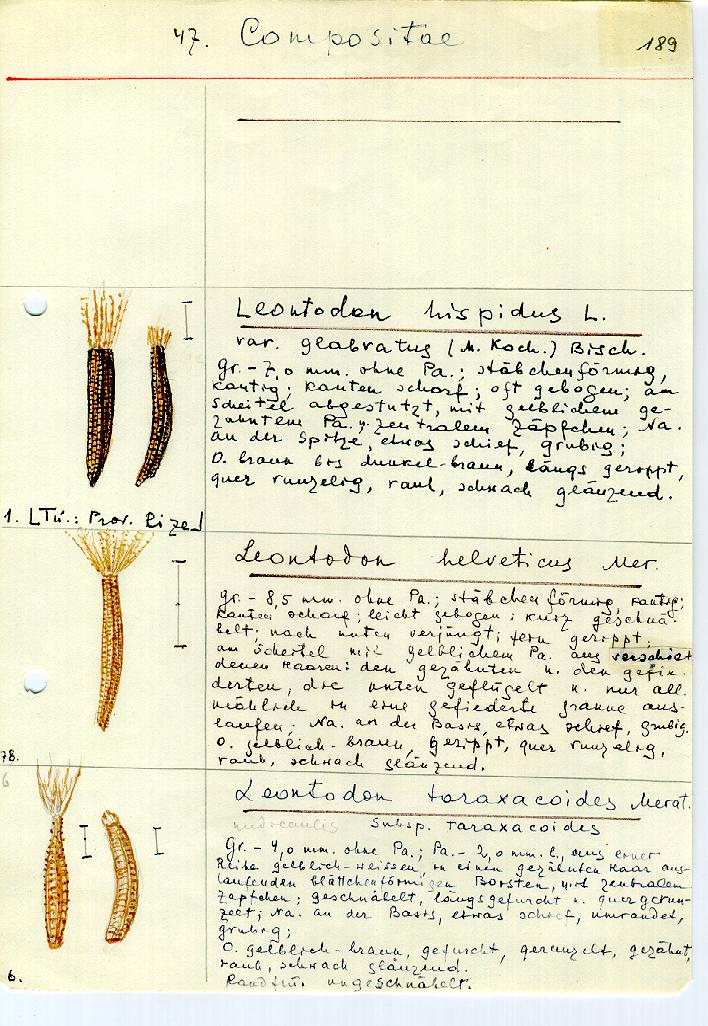 47. Compositae
189
Leontodon hispidus L.
var. glabratus (M. Koch.) Bisch.
gr. - 7,0 mm. ohne Pa.; stäbchenförmig,
kantig; Kanten scharf; oft gebogen; am
Scheitel abgestutzt, mit gelblichem ge-
zähntem Pa. u. zentralem Zäpfchen; Na.
an der Spitze, etwas schief, grubig;
O. braun bis dunkel-braun, längs gerippt,
quer runzelig, rauh, schwach glänzend.
1. LTü.: Prov. Rize
Leontodon helveticus Mer.
gr. - 8,5 mm. ohne Pa.; stäbchenförmig, kantig;
Kanten scharf; leicht gebogen; kurz geschnä-
belt; nach unten verjüngt; fein gerippt;
am Scheitel mit gelblichem Pa. aus verschie-
denen Haaren: den gezähnten u. den gefie-
derten, die unten geflügelt u. nur all-
mählich in eine gefiederte Granne aus-
laufen; Na. an der Basis, etwas schief, grubig.
O. gelblich-braun, gerippt, quer runzelig,
rauh, schwach glänzend.
78.
6
Leontodon taraxacoides Merat.
nudicaulis subsp. taraxacoides
Gr. - 4,0 mm. ohne Pa.; Pa. - 2,0 mm. l., aus einer
Reihe gelblich-weissen, in einen gezähnten Haar aus-
laufenden blättchenförmigen Borsten, mit zentralem
Zäpfchen; geschnäbelt, längsgefurcht u. quergerun-
zelt; Na. an der Basis, etwas schief, umrandet,
grubig;
O. gelblich-braun, gefurcht, gerunzelt, gezähnt,
rauh, schwach glänzend.
Randfrü. ungeschnäbelt.
6.